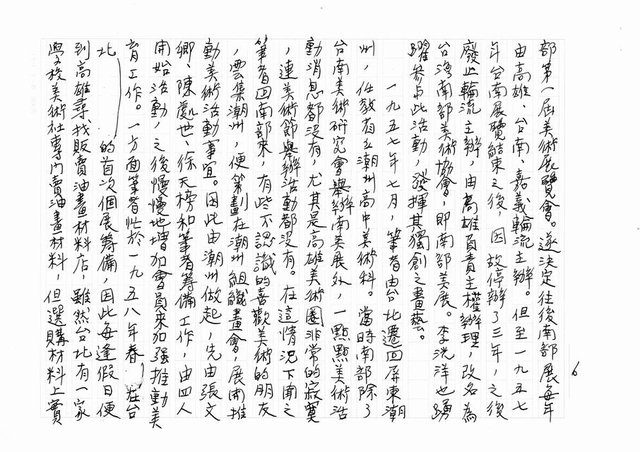 6
部第一屆美術展覽會。遂決定往後南部展每年
由高雄、台南、嘉義輪流主辦。但至一九五七
年台南展覽結束之後，因故停辦了三年，之後
廢止輪流主辦，由高雄負責主權辦理，改名為
台灣南部美術協會，即南部美展。李洸洋也踴
躍參与此活動，發揮其獨創之畫藝。
一九五七年七月，筆者由台北遷回屏東潮
州，任教省立潮州高中美術科。當時南部除了
台南美術研究會舉辦南美展外，一點點美術活
動消息都沒有，尤其是高雄美術圈非常的寂寞
，連美術節舉辦活動都沒有。在這情況下南之
筆者回南部來，有些不認識的喜歡美術的朋友
，雲集潮州，便策劃在潮州組織畫會，展開推
動美術活動事宜。因此由潮州做起，先由張文
卿、陳處世、徐天榜和筆者籌備工作，由四人
開始活動，之後慢慢地增加會員來加強推動美
育工作。一方面筆者忙於一九五八年春，在台
北 的首次個展籌備，因此每逢假日便
到高雄尋找販賣油畫材料店。雖然台北有一家
學校美術社專門賣油畫材料，但選購材料上實